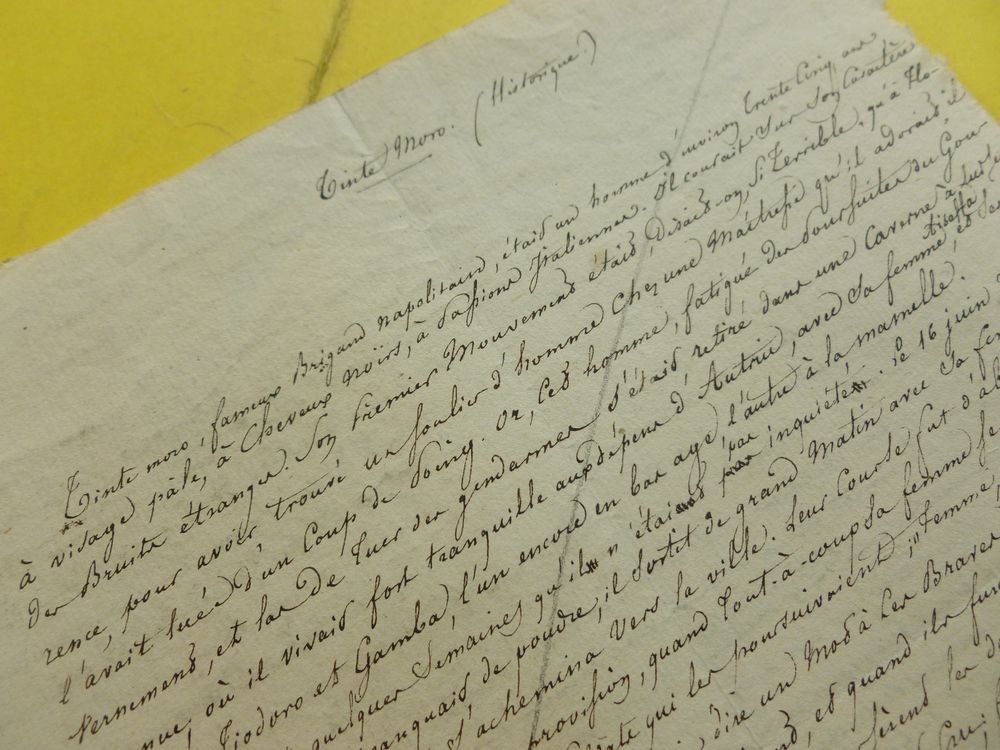 Tinte Moro. (Historique.)
Tinte moro, fameux Brigand napolitain, était un homme d'environ trente Cinq ans
à visage pâle, à Cheveux noirs, à passions Italiennes. Il courait sur son Caractère
des Bruits étranges. Son premier Mouvement était, disait-on, si Terrible, qu'à Flo-
rence, pour avoir trouvé un soulier d'homme Chez une Maîtresse qu'il adorait, il
l'avait tuée d'un Coup de poing. Or, Cet homme, fatigué des poursuites du Gou-
vernement, et las de Tuer des gendarmes s'était retiré dans une Caverne à
où il vivait fort tranquille aux dépens d' avec sa femme, et
Tiodoro et Gamba, l'un encore en bas age, l'autre à la mamelle.
quelques Semaines qu'il n'était par inquiété. le 16 juin
manquait de poudre, il sortit de grand Matin avec sa
s'achemina vers la ville. Leur Course fut
provision, quand Tout-à-coup sa femme
qui les poursuivaient; "Femme,
dire un Mot à Ces Braves
et quand ils